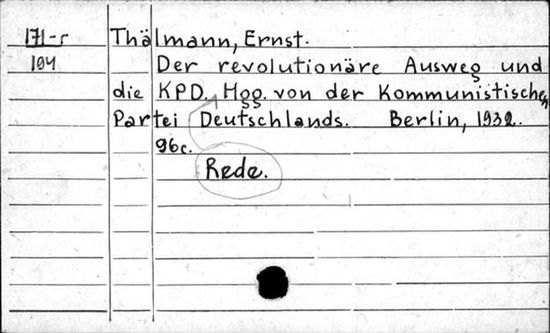 171-5 Thälmann, Ernst.
104 Der revolutionäre Ausweg und
die KPD. Hgg. von der Kommunistischen
Partei Deutschlands. Berlin, 1932.
96c.
Rede.